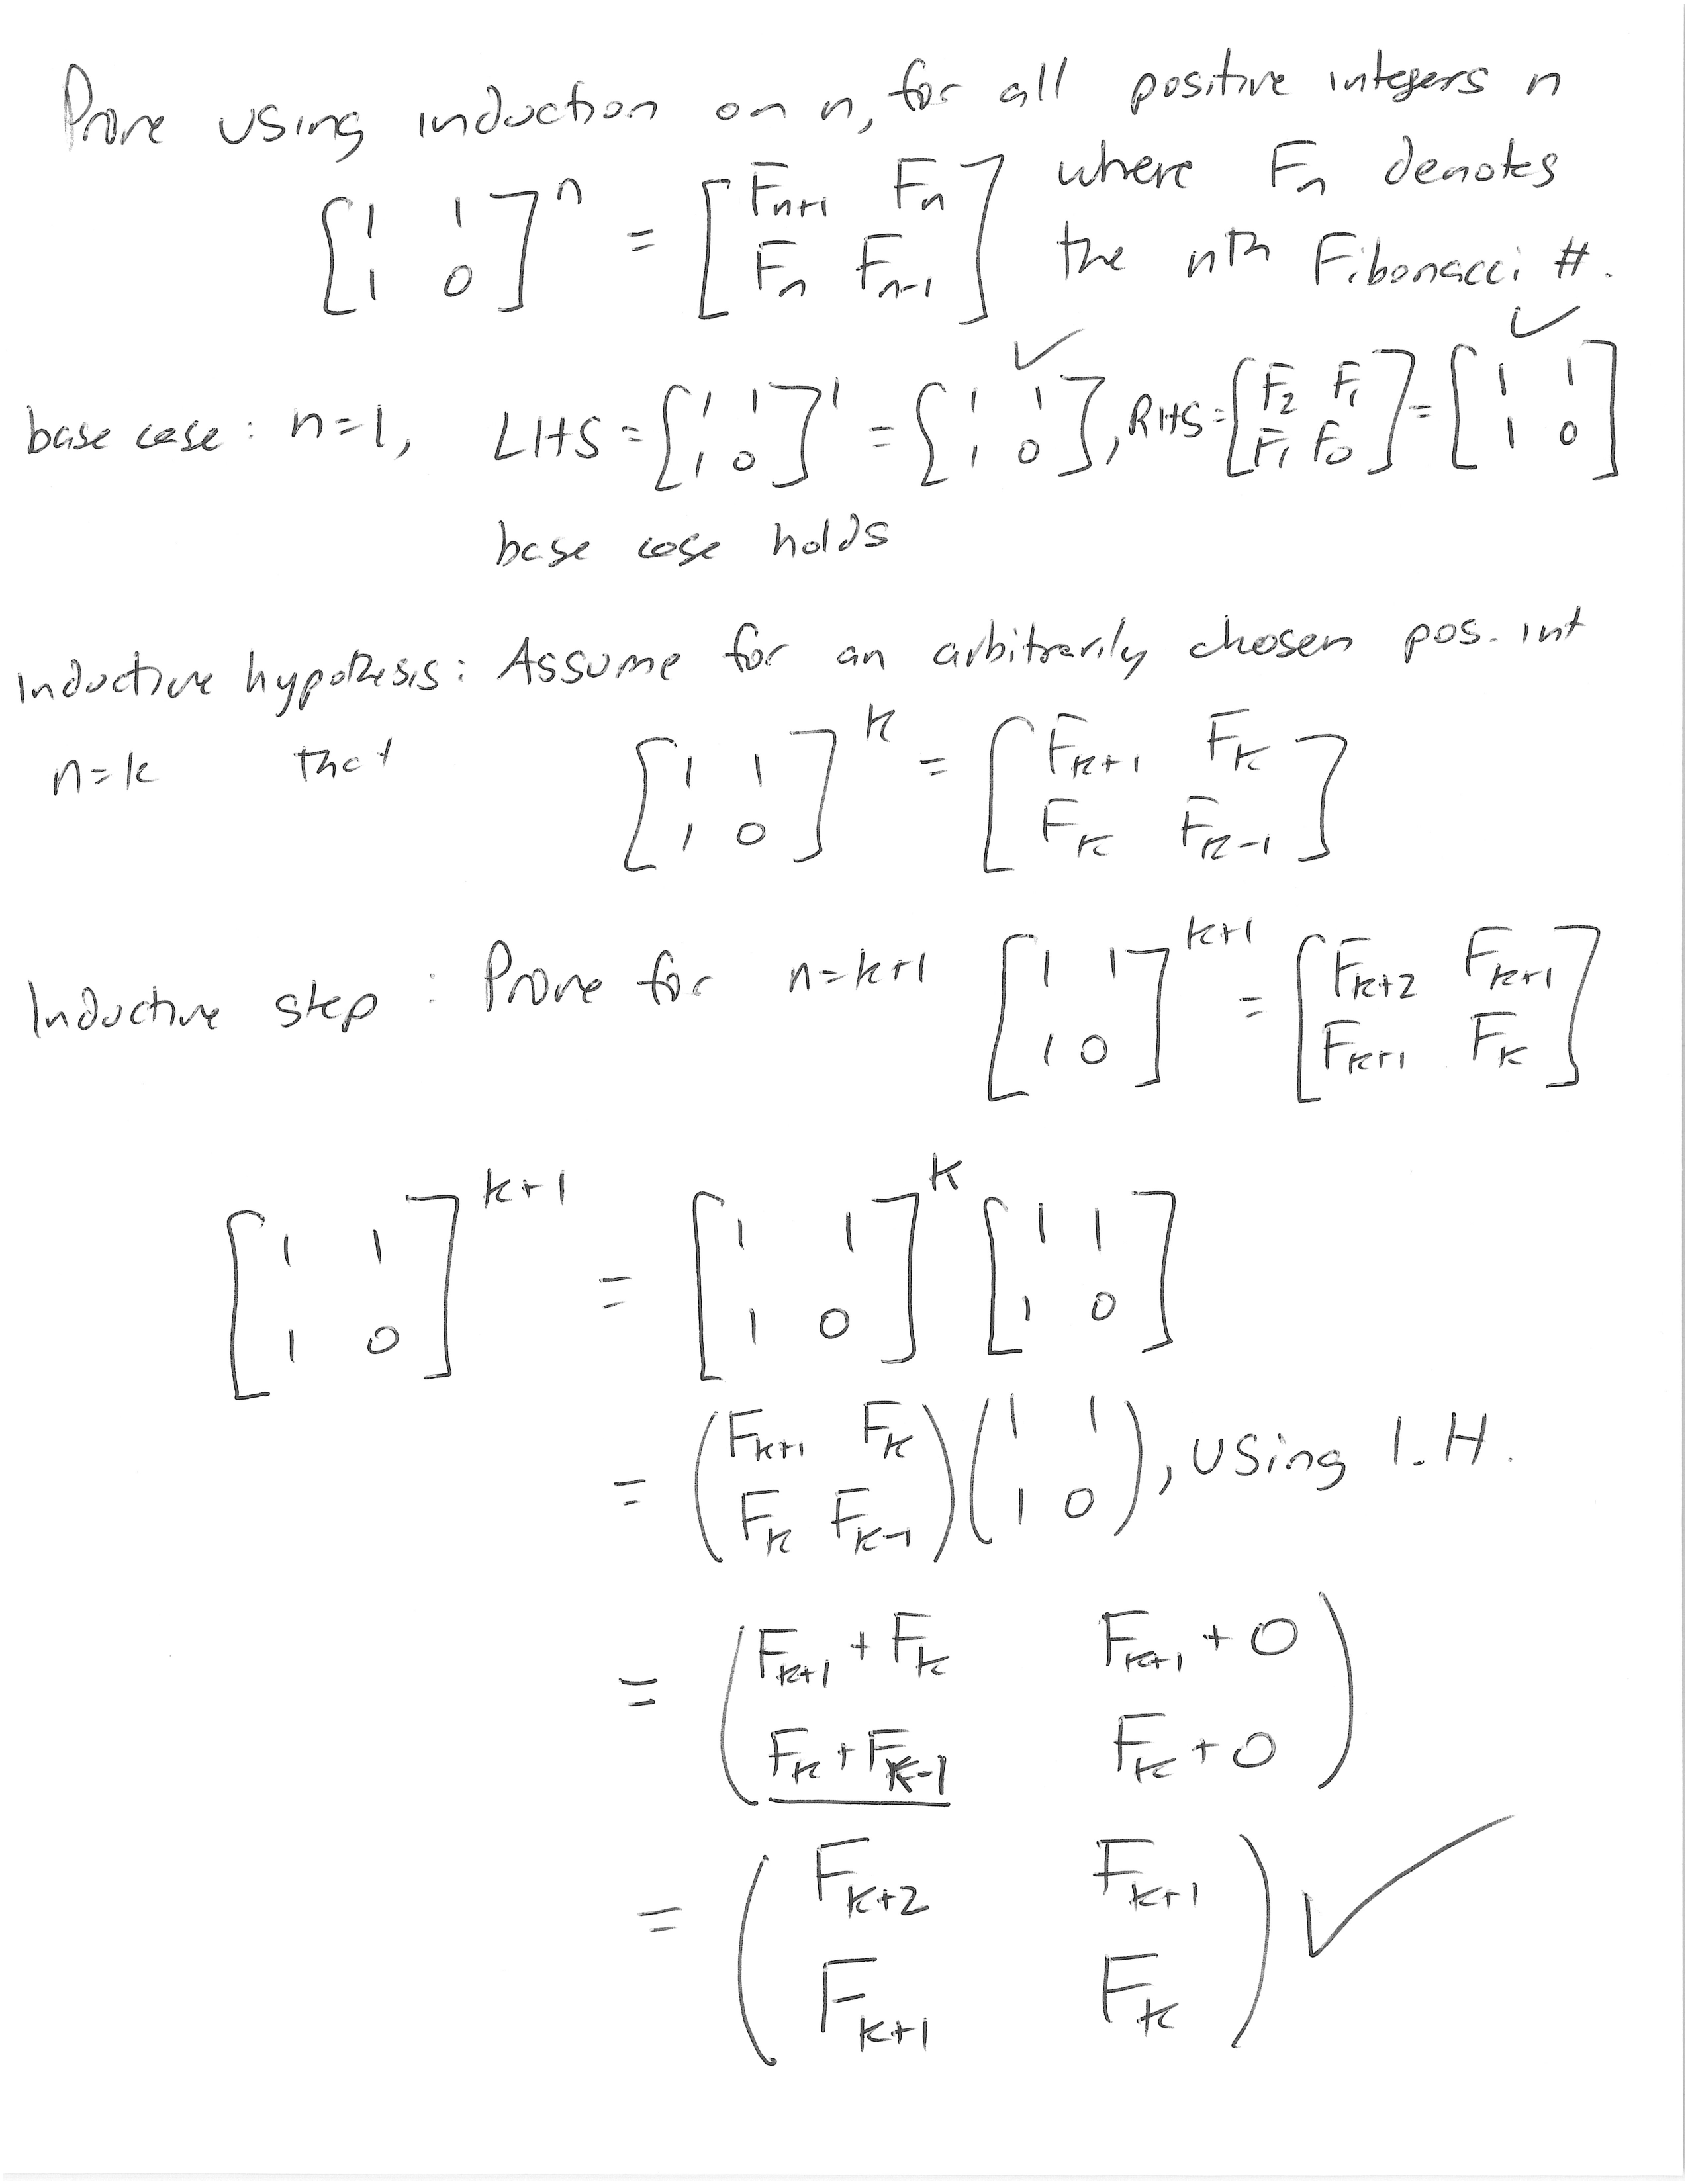 Prove using induction on n, for all positive integers n
[1 1; 1 0]^n = [F_{n+1} F_n; F_n F_{n-1}] where F_n denotes the nth Fibonacci #.
base case: n=1, LHS = [1 1; 1 0]^1 = [1 1; 1 0] ✓, RHS = [F_2 F_1; F_1 F_0] = [1 1; 1 0] ✓
base case holds
Inductive hypothesis: Assume for an arbitrarily chosen pos. int
n=k that [1 1; 1 0]^k = [F_{k+1} F_k; F_k F_{k-1}]
Inductive step: Prove for n=k+1 [1 1; 1 0]^{k+1} = [F_{k+2} F_{k+1}; F_{k+1} F_k]
[1 1; 1 0]^{k+1} = [1 1; 1 0]^k [1 1; 1 0]
= (F_{k+1} F_k; F_k F_{k-1}) (1 1; 1 0), using I.H.
= (F_{k+1}+F_k F_{k+1}+0; F_k+F_{k-1} F_k+0)
= (F_{k+2} F_{k+1}; F_{k+1} F_k) ✓